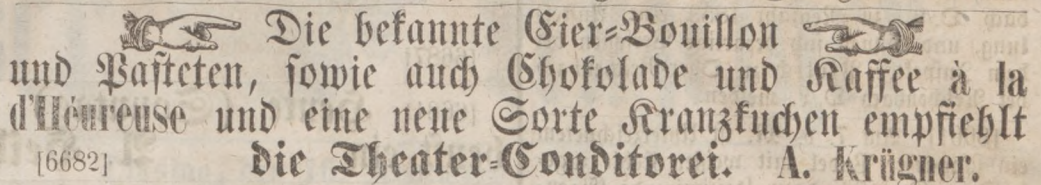 Die bekannte Eier-Bouillon
und Pasteten, sowie auch Chokolade und Kaffee à la
d'Héureuse und eine neue Sorte Kranzkuchen empfiehlt
[6682] die Theater-Conditorei. A. Krügner.